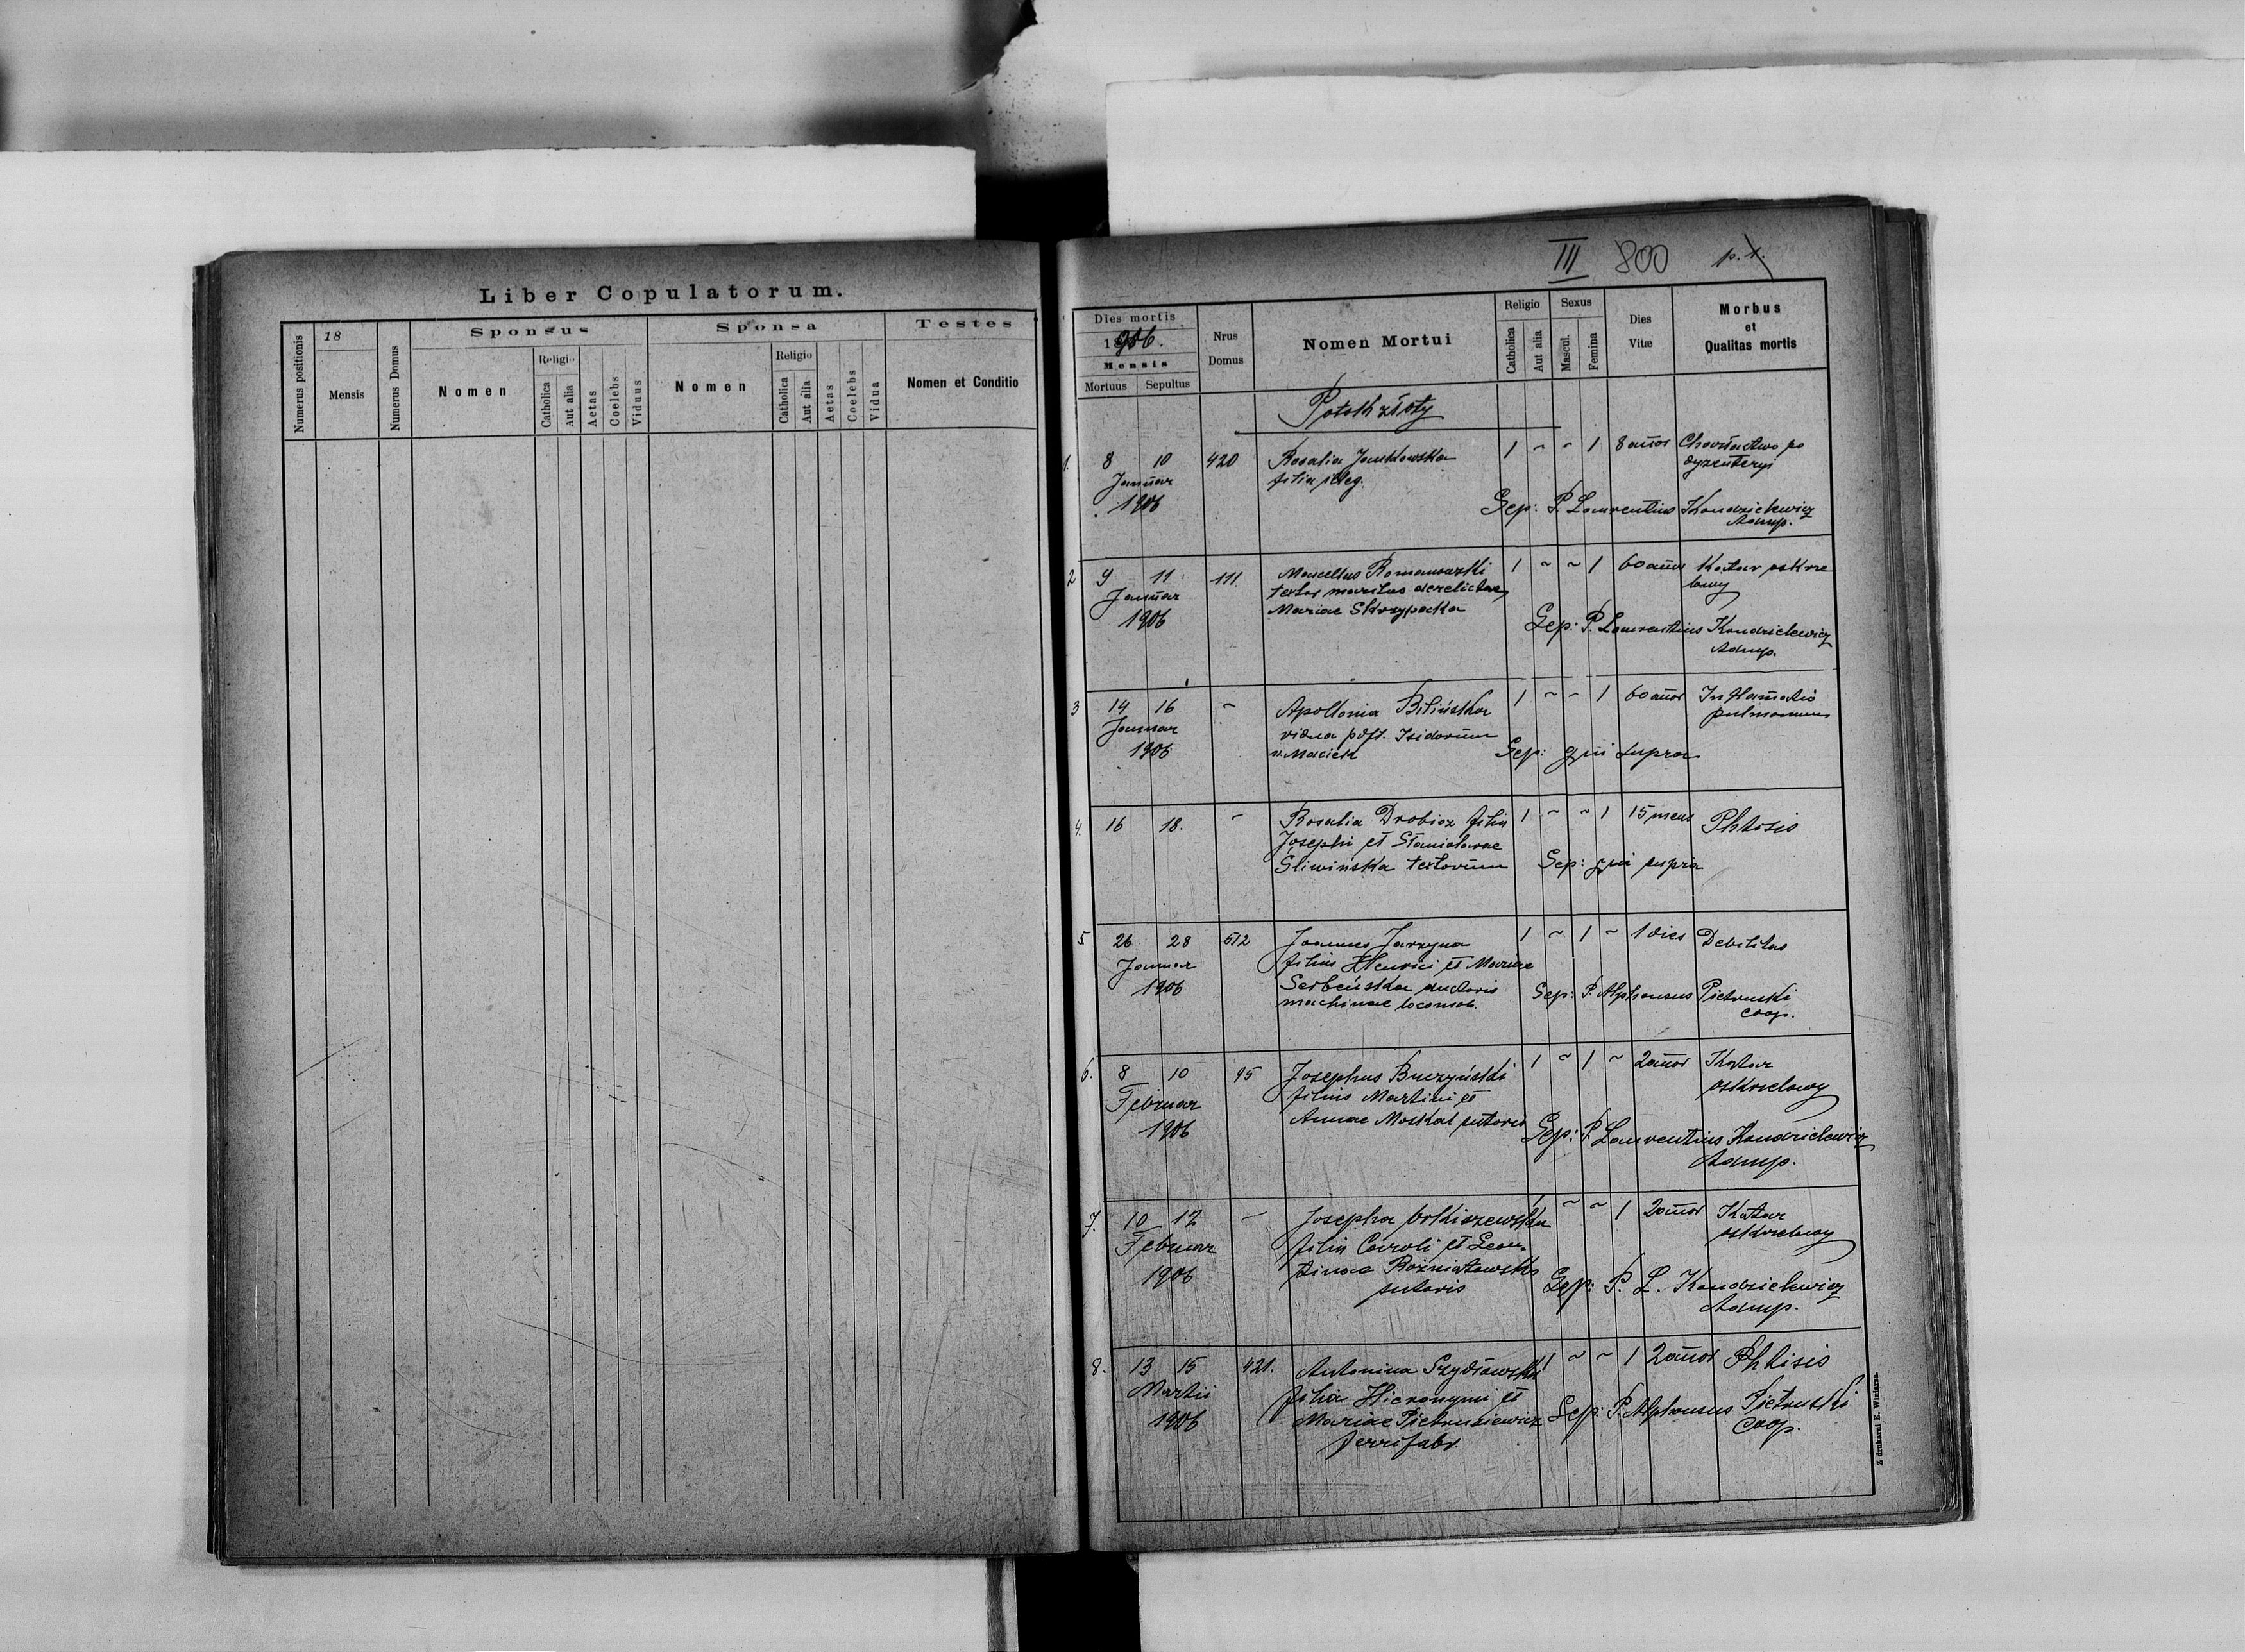 Liber Copulatorum.
Numerus positionis
18
Mensis
Numerus Domus
Sponsus
Nomen
Religio
Catholica
Aut alia
Aetas
Coelebs
Viduus
Sponsa
Nomen
Religio
Catholica
Aut alia
Aetas
Coelebs
Vidua
Testes
Nomen et Conditio
III 800 p. 1.
Dies mortis
1906.
Mensis
Mortuus Sepultus
Nrus Domus
Nomen Mortui
Religio
Catholica
Aut alia
Sexus
Mascul.
Femina
Dies Vitæ
Morbus
et
Qualitas mortis
Potok złoty
1. 8 10 420 Rosalia Jankowska 1 ~ ~ 1 8 annor Charłactwo po
Januar filia illeg. dyzenteryi
1906 Sep: P. Laurentius Kondzielewicz
Admp.
2 9 11 111. Marcellus Romanowski 1 ~ ~ 1 60 annor Katar oskrze
Januar textor maritus derelictae lowy
1906 Mariae Skrzypecka Sep: P. Laurentius Kondzielewicz
Admp.
3 14 16 ~ Apollonia Bilińska 1 ~ ~ 1 60 annor Inflamatio
Januar vidua post. Isidorum pulmonum
1906 n. Maciek Sep: qui supra
4. 16 18. ~ Rosalia Drobicz filia 1 ~ ~ 1 15 mens Phtisis
Josephi et Stanislavae
Śliwińska textorum Sep: qui supra
5 26 28 512 Joannes Jarzyna 1 ~ 1 ~ 1 dies Debilitas
Januar filius Henrici et Mariae
1906 Serbeńska ductoris Sep: P. Alphonsus Pietruski
machinae locomob. coop.
6. 8 10 95 Josephus Buczyński 1 ~ 1 ~ 2 annor Katar
Februar filius Martini et oskrzelowy
1906 Annae Moskal sutoris Sep: P. Laurentius Kondzielewicz
Admp.
7. 10 12 ~ Josepha 1 ~ ~ 1 2 annor Katar
Februar filia Caroli et Leon- oskrzelowy
1906 tinae Rożniatowska Sep: P. L. Kondzielewicz
sutoris Admp.
8. 13 15 421. Antonina Szydłowska 1 ~ ~ 1 2 annor Phtisis
Martii filia Hieronymi et
1906 Mariae Pietrusiewicz Sep: P. Alphonsus Pietruski
ferrifabr. Coop.
Z drukarni E. Winiarza.